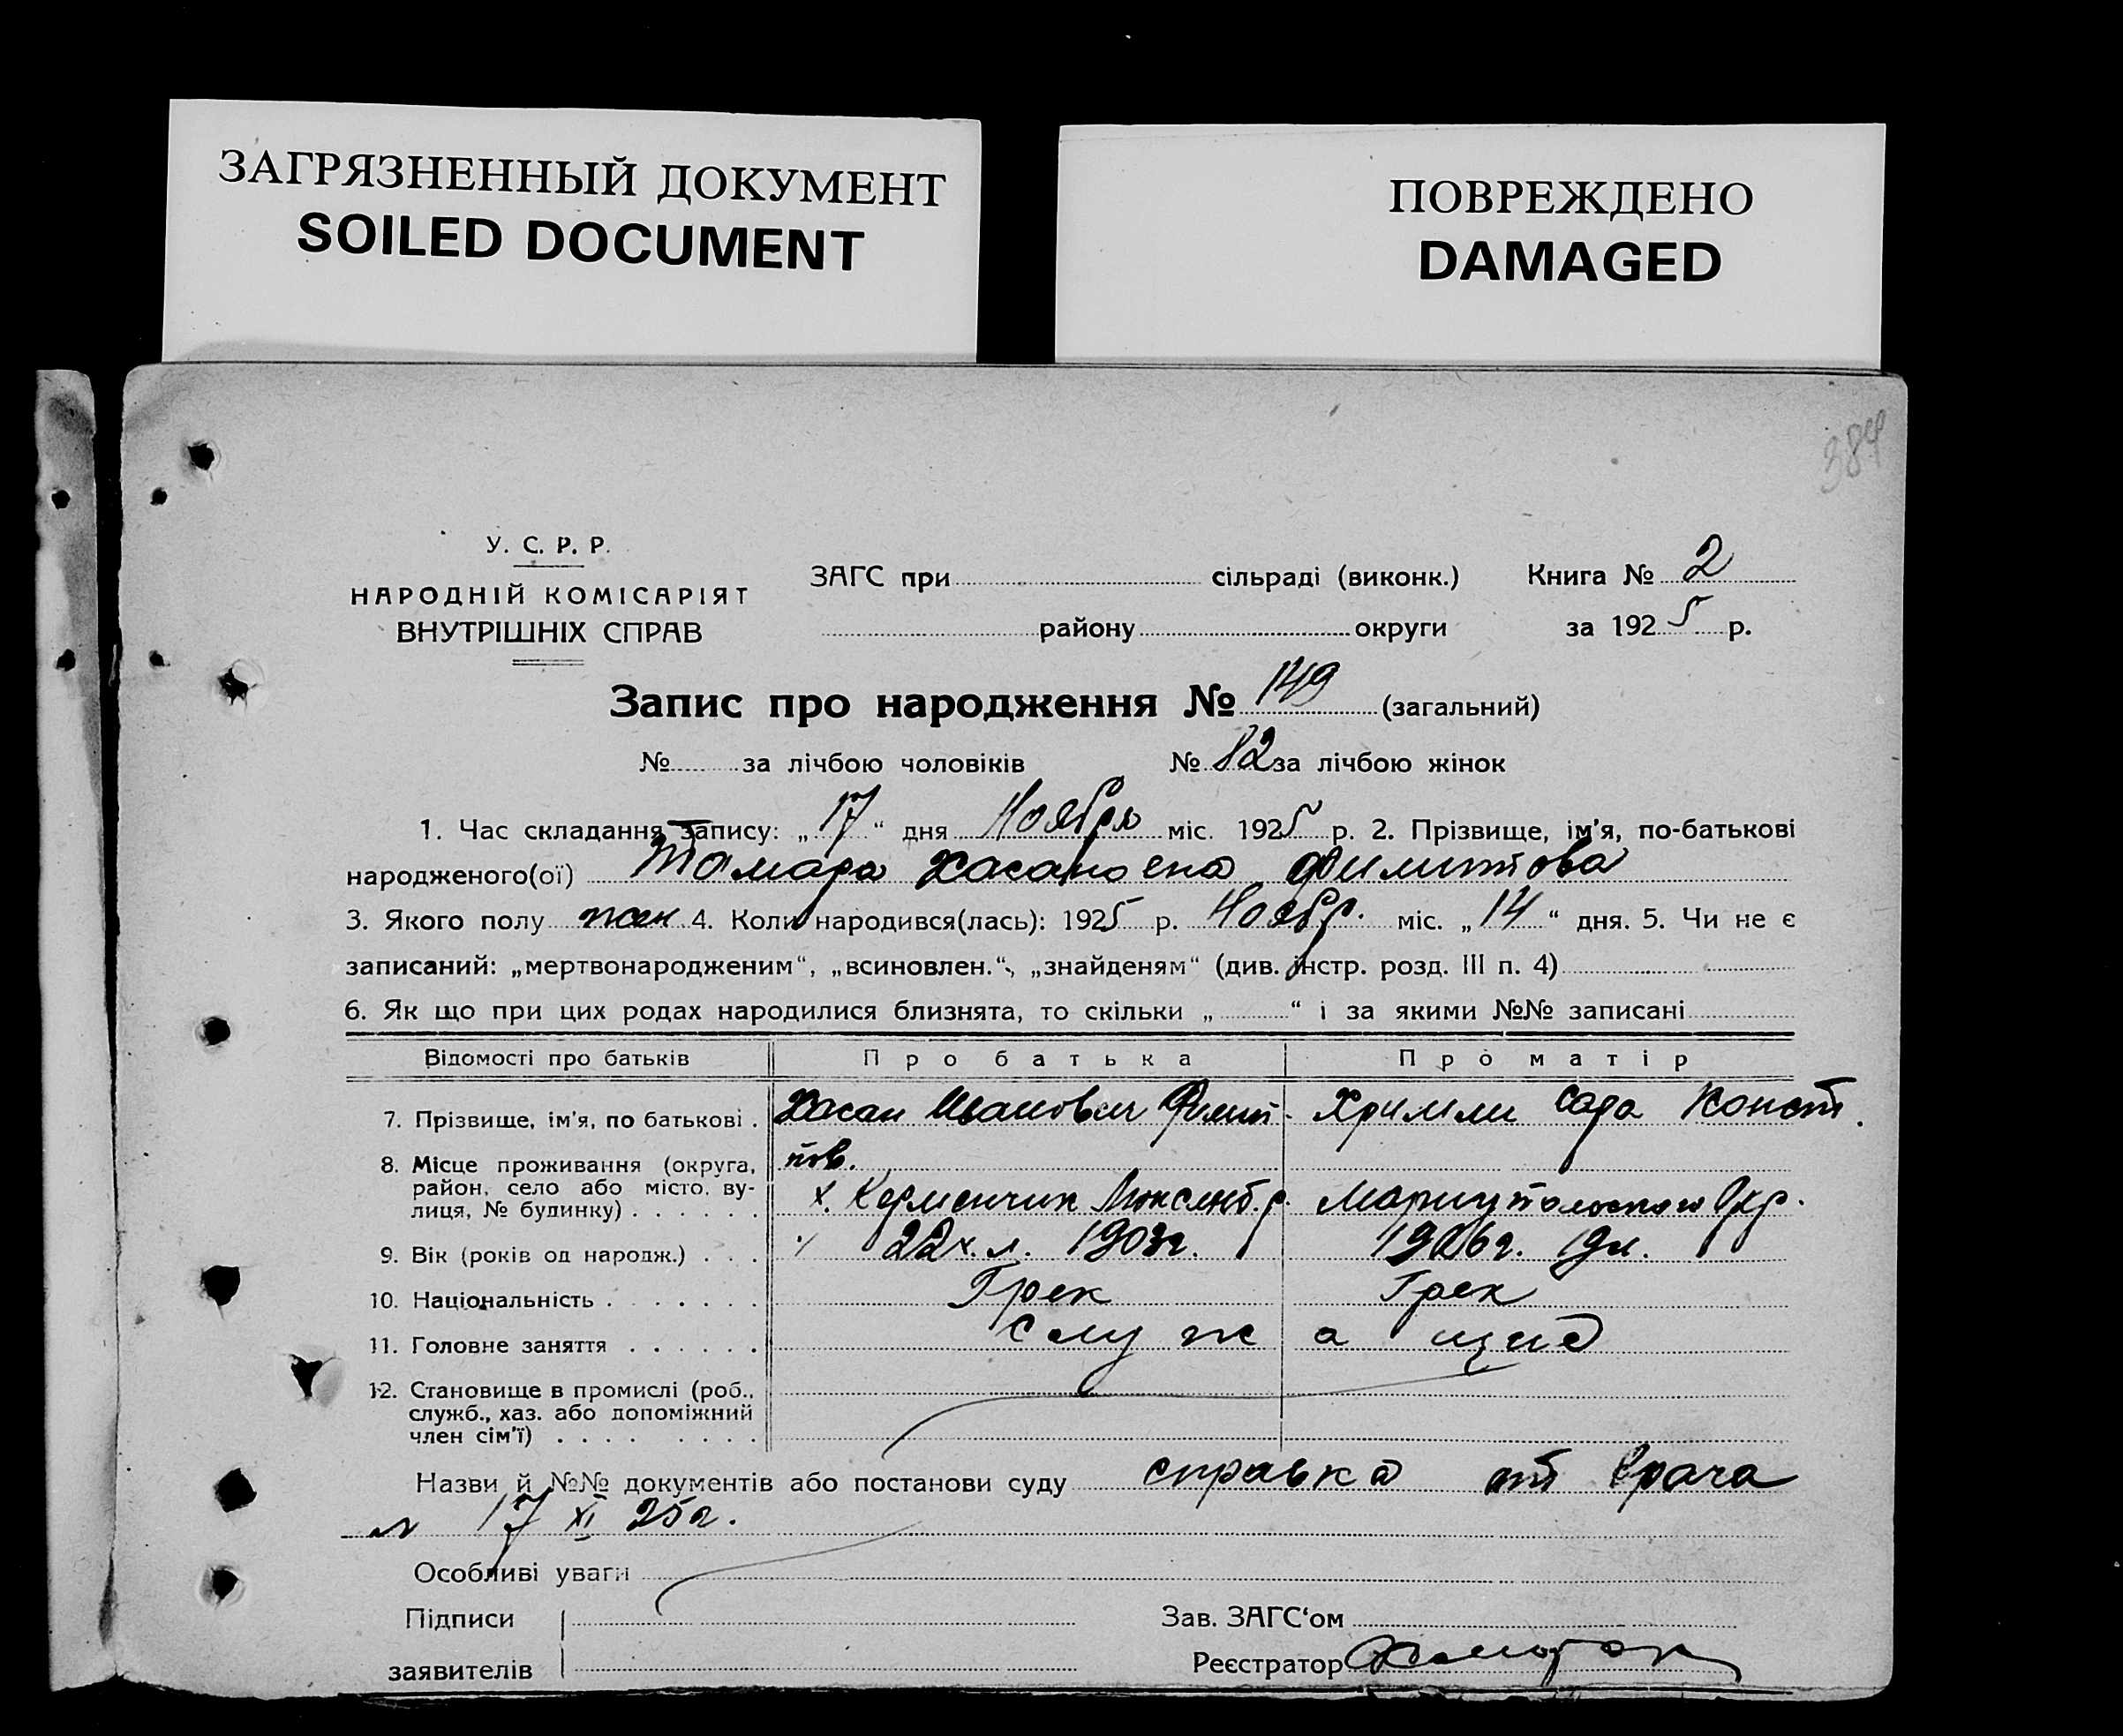 ЗАГРЯЗНЕННЫЙ ДОКУМЕНТ
SOILED DOCUMENT
ПОВРЕЖДЕНО
DAMAGED
У. С. Р. Р.
НАРОДНІЙ КОМІСАРІЯТ
ВНУТРІШНІХ СПРАВ
ЗАГС при сільраді (виконк.) Книга № 2
району округи за 1925 р.
Запис про народження № 149 (загальний)
№ за лічбою чоловіків № 82 за лічбою жінок
1. Час складання запису: „17“ дня Ноября міс. 1925 р. 2. Прізвище, ім'я, по-батькові
народженого(ої) Тамара Хасановна
3. Якого полу жен 4. Коли народився(лась): 1925 р. Ноябр. міс. „14“ дня. 5. Чи не є
записаний: „мертвонародженим“, „всиновлен.“, „знайденям“ (див. інстр. розд. III п. 4)
6. Як що при цих родах народилися близнята, то скільки „ “ і за якими №№ записані
Відомості про батьків Про батька Про матір
7. Прізвище, ім'я, по батькові . Хасан Иванович Сара Конст.
8. Місце проживання (округа, тов.
район, село або місто, ву-
лиця, № будинку) . . . . . . х. Керменчик Мариупольского Окр.
9. Вік (років од народж.) . . . 22 л. 1903г. 1906г. 19л.
10. Національність . . . . . . . Грек Грек
11. Головне заняття . . . . . . служащие
12. Становище в промислі (роб.,
служб., хаз. або допоміжний
член сім'ї) . . . . . . . .
Назви й №№ документів або постанови суду справка от врача
17 XI 25г.
Особливі уваги
Підписи
заявителів
Зав. ЗАГС'ом
Реєстратор